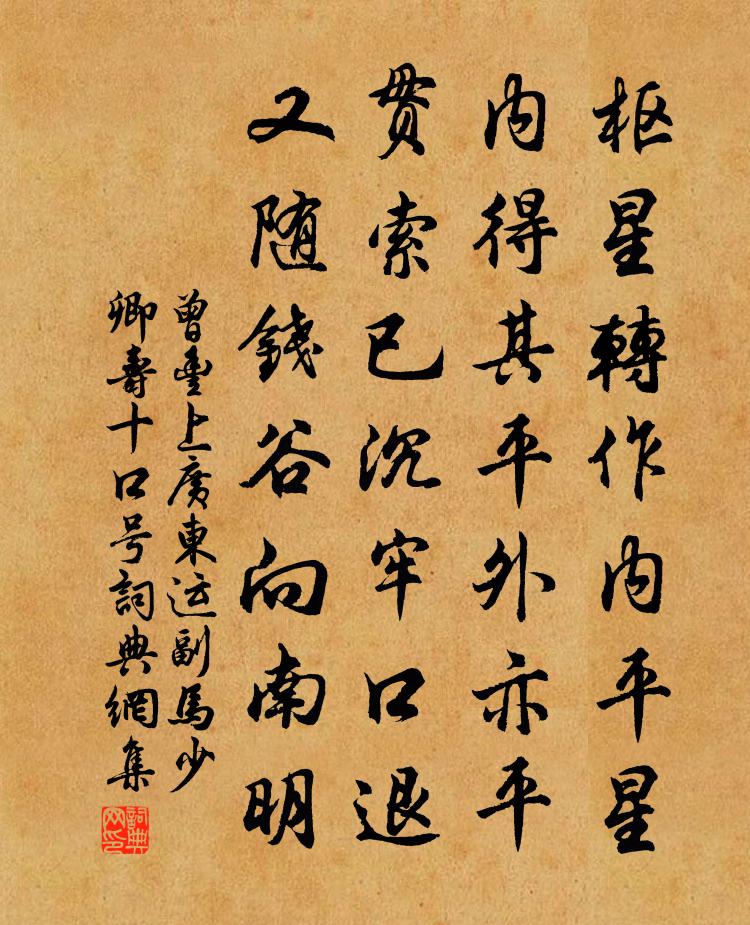 枢星轉作内平星
内得其平外亦平
贯索已沉牢口退
又随錢谷向南明
曾豊上廣東运副馬少
卿壽十口号詞典網集
詞典网印